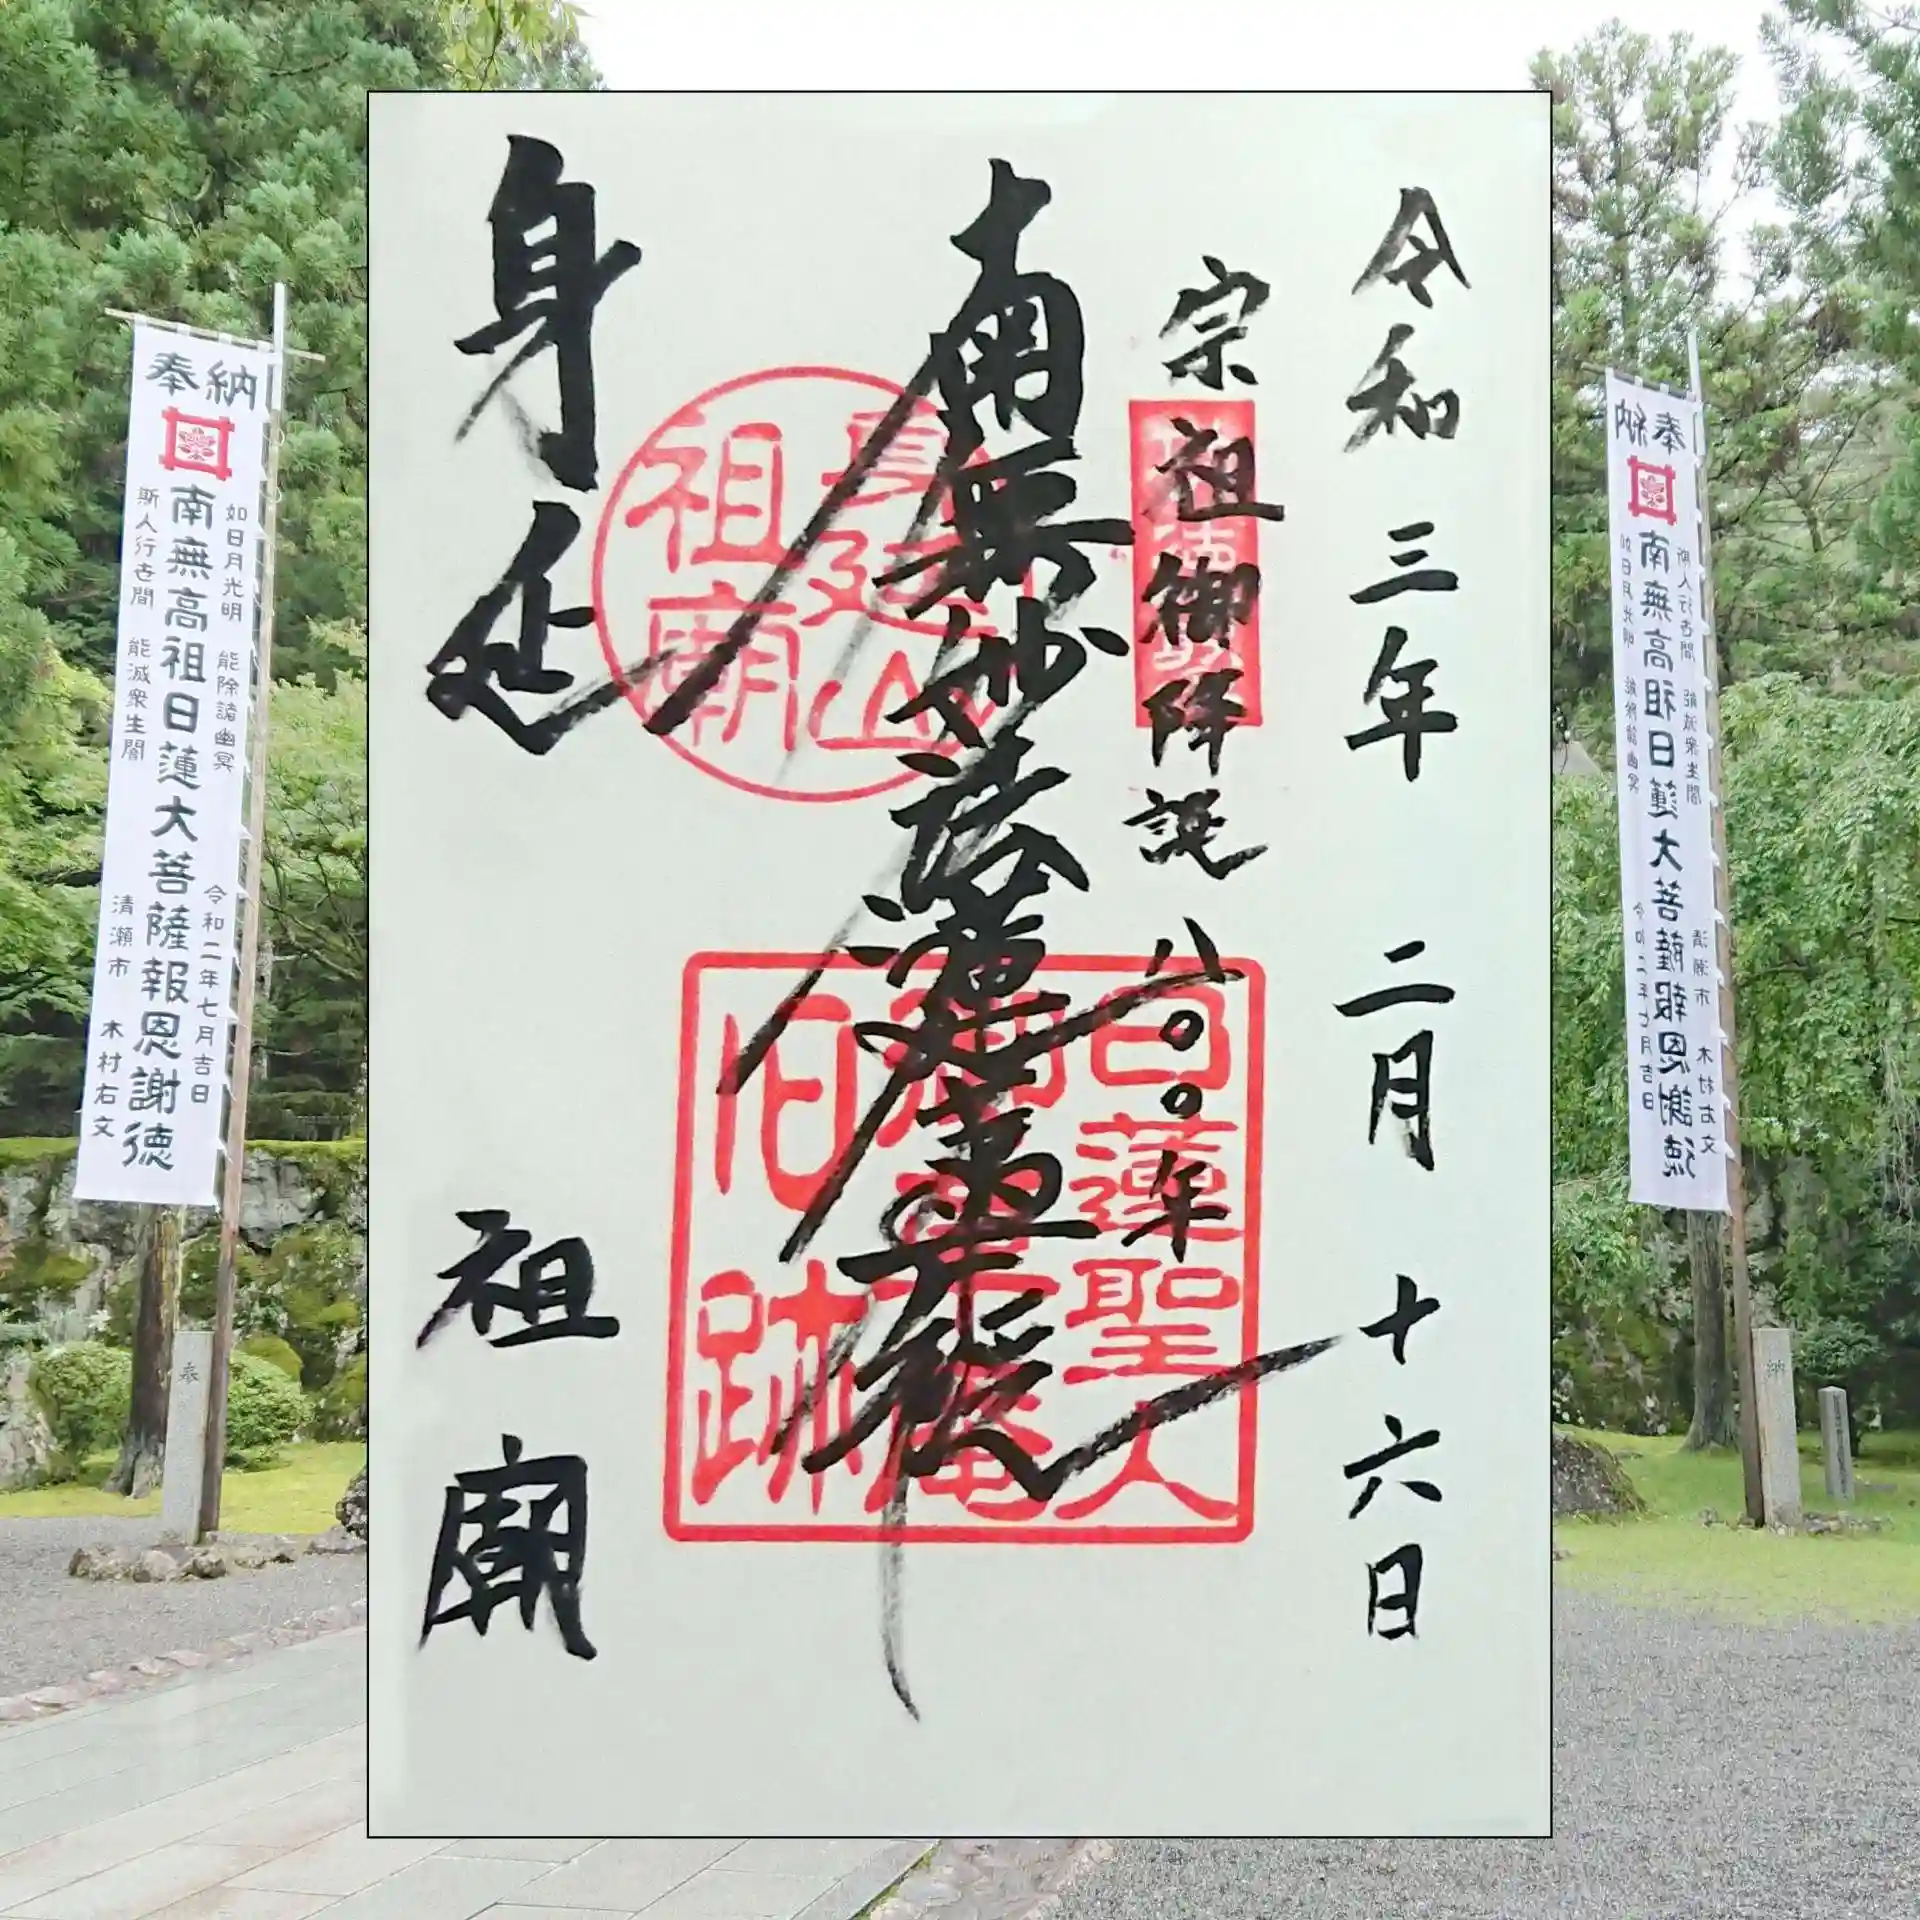 令和三年 二月 十六日
宗祖御降誕八〇〇年
南無妙法蓮華経
身延 祖廟
身延山
祖廟
日蓮聖人
旧跡
奉納
如日月光明 能除諸幽冥
令和二年七月吉日
南無高祖日蓮大菩薩報恩謝徳
斯人行世間 能滅衆生闇
清瀬市 木村右文
奉
奉納
斯人行世間 能滅衆生闇
清瀬市 木村右文
南無高祖日蓮大菩薩報恩謝徳
如日月光明 能除諸幽冥
令和二年七月吉日
納